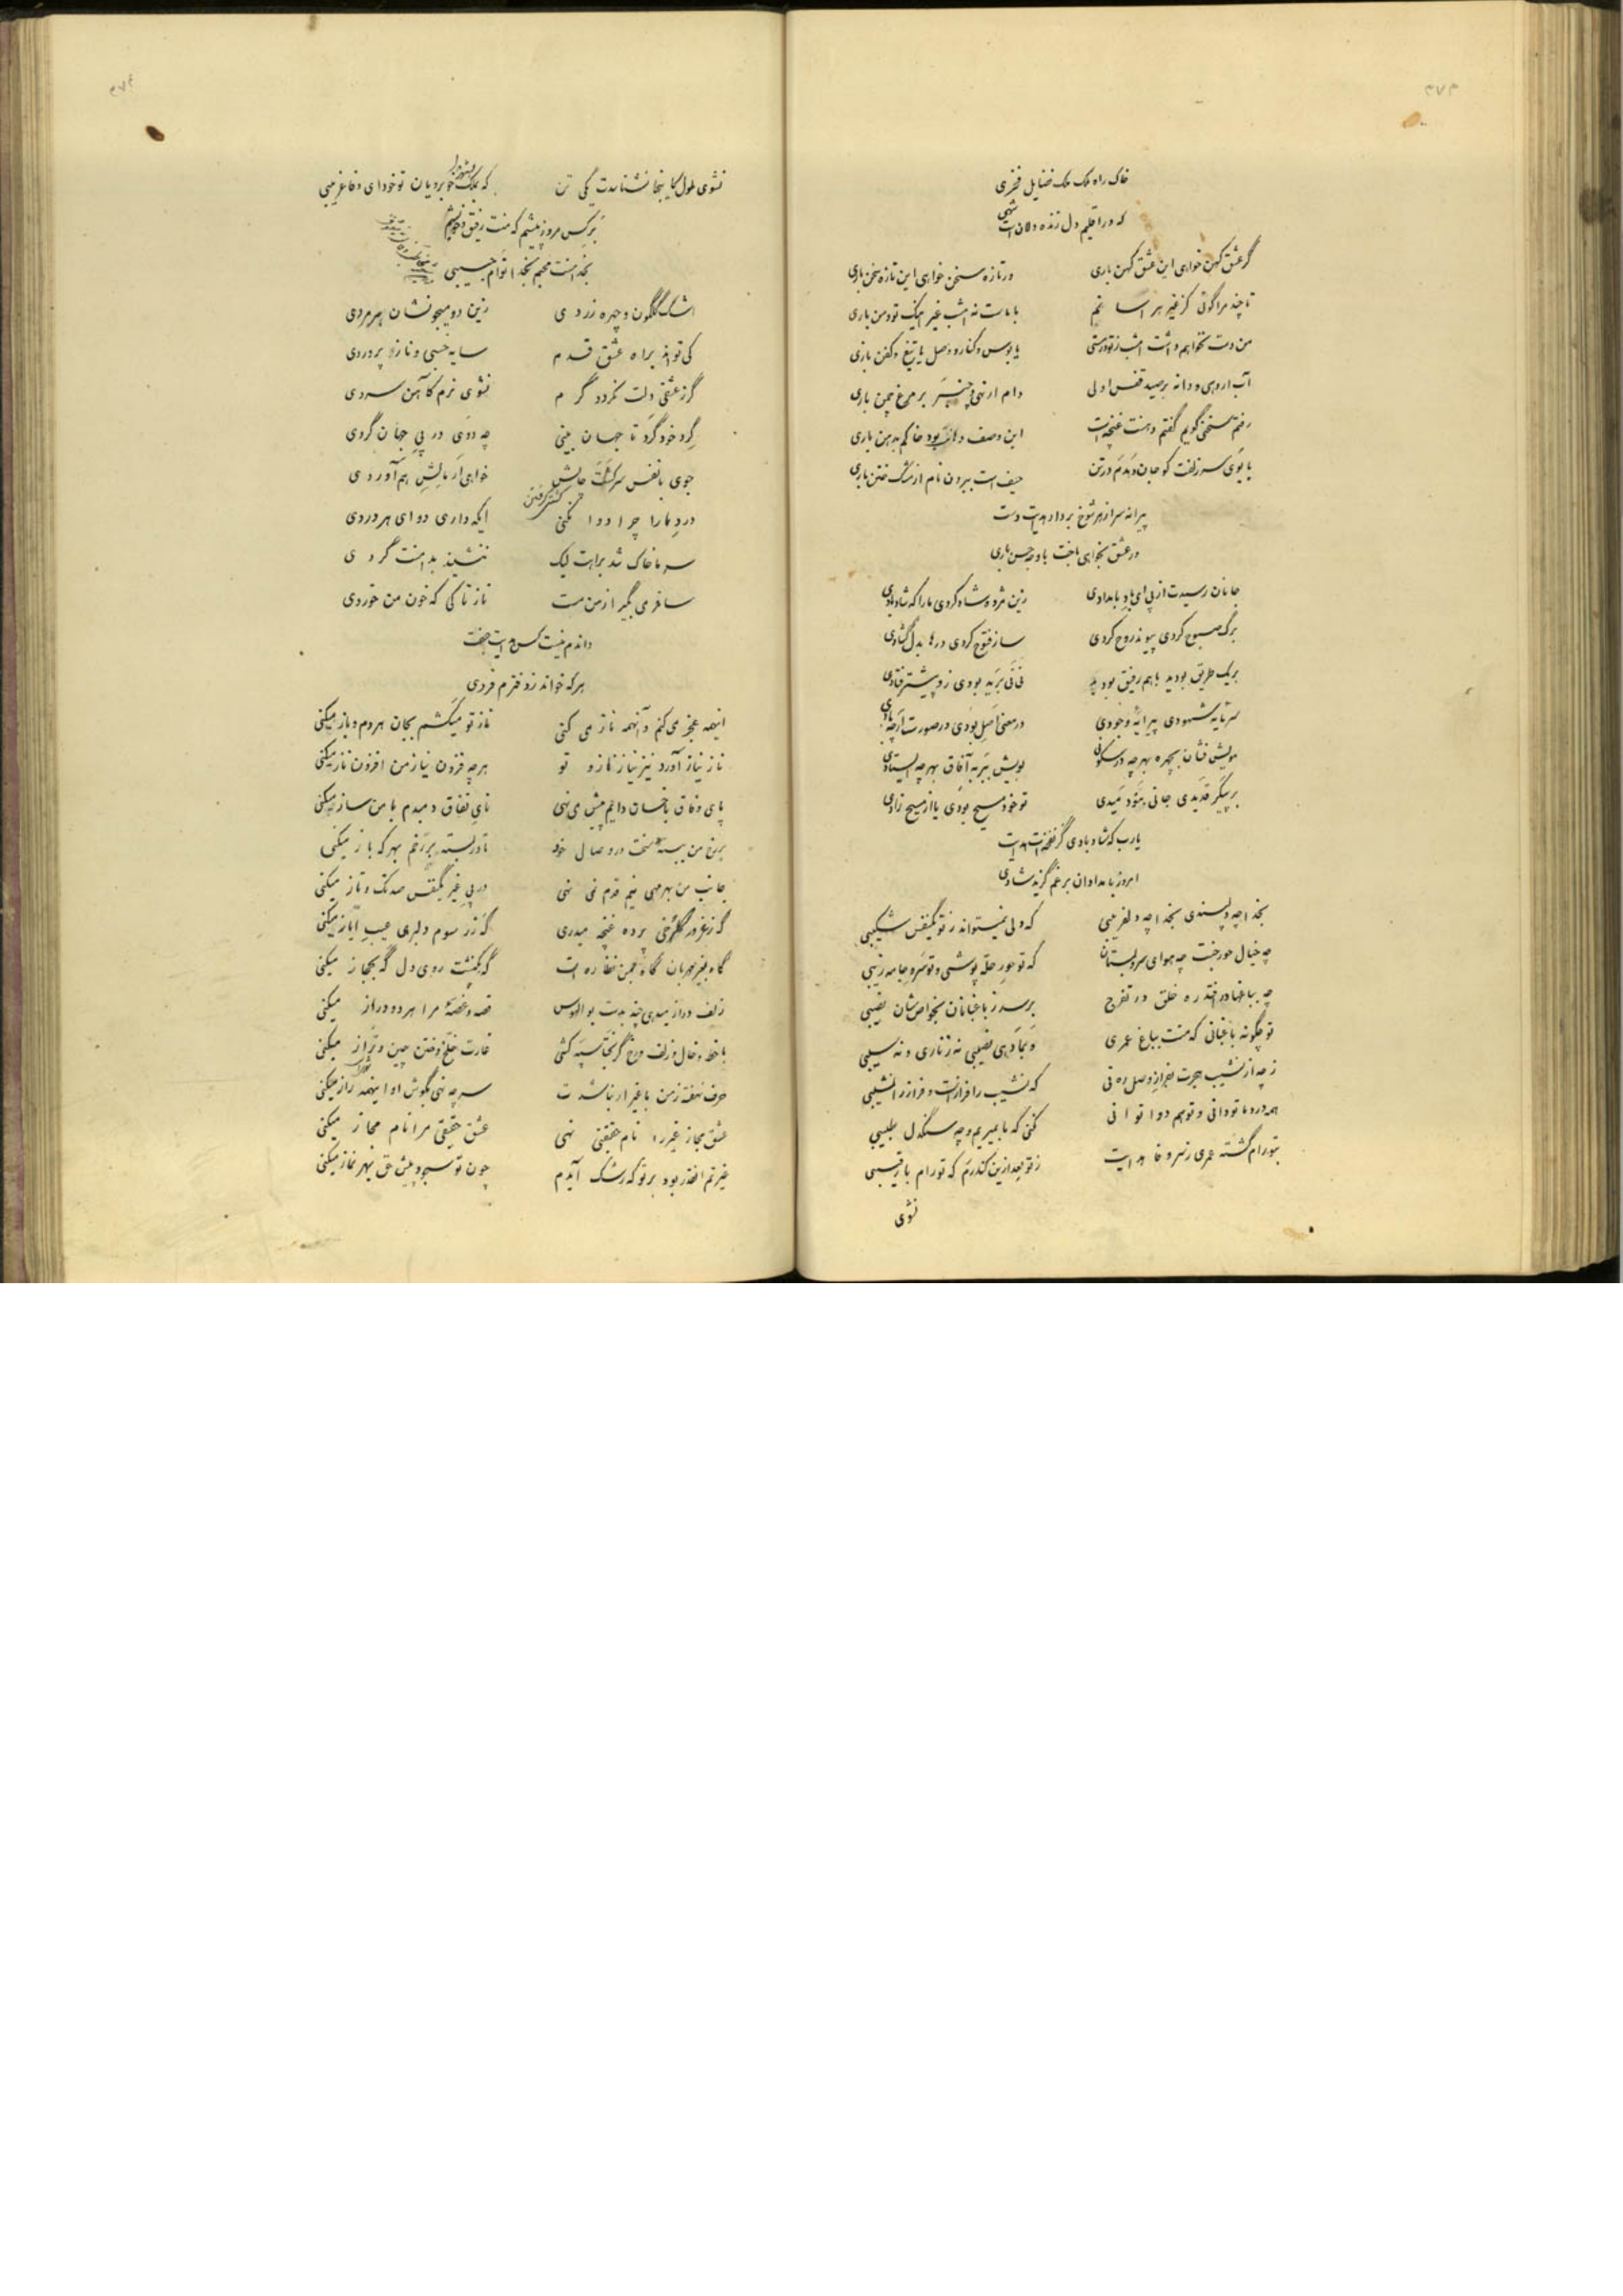 خاک راه ملک ملک فضایل فخری
که در اقلیم دل زنده دلان است شهی
گر عشق کهن خواهی این عشق کهن باری
ور تازه سخن خواهی این تازه سخن باری
تا چند مرا گوئی کز غیر هراسانم
با ما نه امشب غیر اینک تو و من باری
من دست نخواهم داشت امشب ز تو درستی
یا بوس و کنار و وصل یا تیغ و کفن باری
آب ار دهی و دانه بر صید قفس اولی
دام ار نهی و چنبر بر مرغ چمن باری
رفتم سخنی گویم گفتم دهنت غنچه است
این وصف دهانت بود خاکم بدهن باری
با بوی سر زلفت کو جان و دم در تن
حیف است بیرون نام از مشک ختن باری
پیرانه سر از هر شوخ بردار هدایت دست
ور عشق بخواهی باخت با وجه حسن باری
جانان رسیدت از پی ای باد بامدادی
زین مژده شاد کردی ما را که شاد بادی
برگ صبوح کردی پیوند روح کردی
ساز فتوح کردی درها بدل گشادی
بر یک طریق بودید با هم رفیق بودید
نی نی برید بودی زو پیشتر فتادی
سرمایه شهودی پیرایه وجودی
در معنی اصل بودی در صورت ارچه بادی
مویش فشان بچهره بهر چه در سکونی
بویش ببر به آفاق بهر چه ایستادی
بر پیکر قدیدی جانی بمو دمیدی
تو خود مسیح بودی یا از مسیح زادی
یارب که شاد بادی کز نفخه‌ات هدایت
امروز بامدادان بر غم گزید شادی
بخدا چه دلپسندی بخدا چه دلفریبی
که دلی نمیتواند ز تو یکنفس شکیبی
چه خیال حور جنت چه هوای سرو بستان
که تو حور حله پوشی و تو سرو جامه زیبی
چه بباغها در افتد ره خلق در تفرج
برسد ز باغبانان بخواص شان نصیبی
تو چگونه باغبانی که منت بباغ عمری
و نداد‌هی نصیبی نه ز ناری و نه سیبی
ز چه از نشیب هجرت بفراز وصل ره نی
که نشیب را فراز است و فراز را نشیبی
همه درد ما تو دانی و تو هم دوا توانی
نکنی که ما بمیریم و چه سنگدل طبیبی
بتو رام گشته عمری زنیرو خا هدایت
ز تو بعد ازین کند رم که تو رام با رقیبی
نشوی
نشوی ملول کاینجا نشناسدت یکی تن
که بملک خوبرویان تو خود ای وفا غریبی
بر کس مرو ز پیشم که منت رفیق و خویشم
بخدا منت محبم بخدا توام حبیبی
اشک گلگون و چهره زردی
زین دو میجو نشان هر مردی
کی تو اند براه عشق قدم
سایه خسبی و ناز پروردی
گر ز عشقی دلت نگردد گرم
نشوی نرم کاهن سردی
گرد خود گرد تا جهان بینی
چه دوی در پی جهان گردی
جوی با نفس سرکشت چالش
خواهی ار مالش هم آوردی
درد ما را چرا دوا نکنی
ایکه داری دوای هر دردی
سر ما خاک شد براهت لیک
ننشیند بدامنت گردی
ساغر می بگیر از من مست
ناز تا کی که خون من خوردی
داندم نیست کس هدایت جفت
هر که خواند ز دفترم فردی
اینهمه عجز می کنم و آنهمه ناز می کنی
ناز تو میکشم بجان هر دم و باز میکنی
ناز نیاز آورد نیز نیاز ناز و تو
هر چه فزون نیاز من افزون ناز میکنی
پای وفاق با خسان دایم پیش می نهی
نای نفاق دمبدم با من ساز میکنی
بر رخ من ببسته سخت در وصال خود
تا در بسته بر رخم بهر که باز میکنی
جانب من بهر مهی نیم قدم نمی نهی
در پی غیر یکنفس صد تک و تاز میکنی
گه ز غرور گلرخی پرده غنچه میدری
گه ز رسوم دلبری عیب ایاز میکنی
گاه بغیر مهربان گاه بمن نظاره ات
گه بکنشت روی دل گه بحجاز میکنی
زلف دراز میدهی چند بدست بوالهوس
قصه و غصه مرا هر دو دراز میکنی
با خط و خال و زلف و رخ گر بختا سپه کشی
غارت خلخ و ختن چین و تراز میکنی
حرف نهفته ز من با غیر ار نباشدت
سر چه نهی بگوش او اینهمه راز میکنی
عشق مجاز غیر را نام حقیقتی نهی
عشق حقیقی مرا نام مجاز میکنی
غیرتم آنقدر بود بر تو که رشک آیدم
چون تو سجود پیش حق بهر نماز میکنی